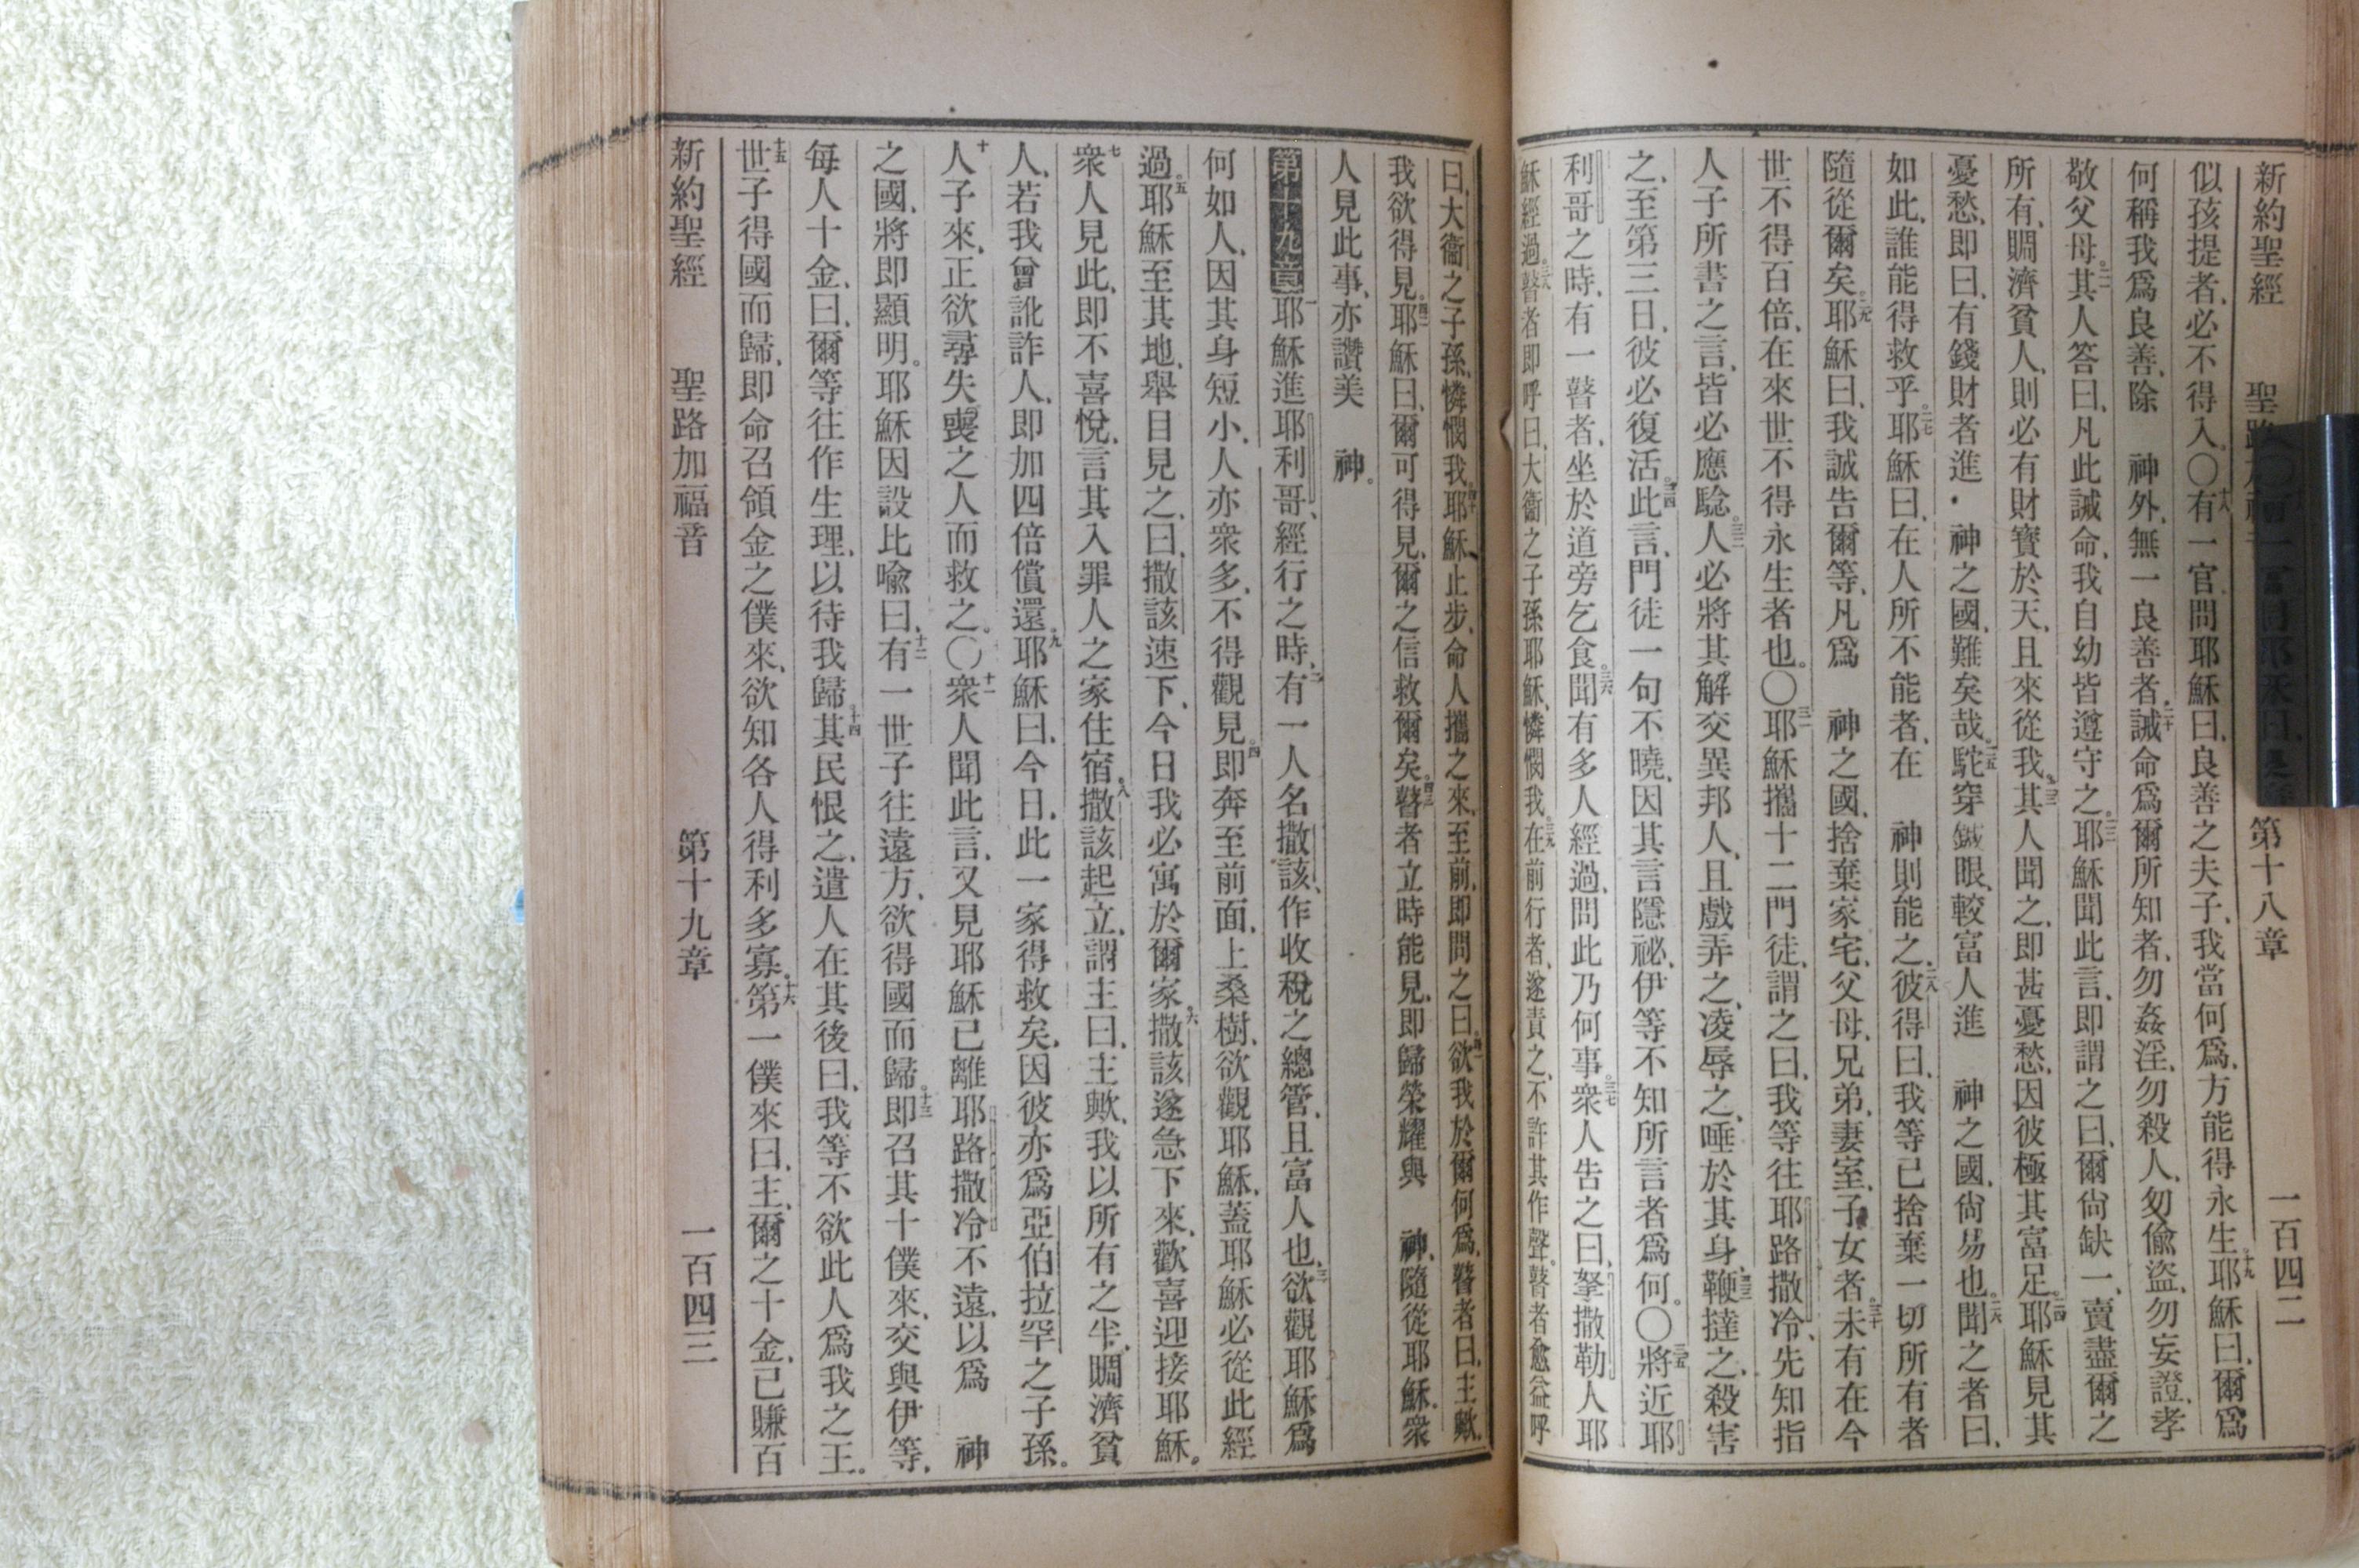 新約聖經 聖路 第十八章 一百四二
似孩提者、必不得入。〇十八有一官問耶穌曰、良善之夫子、我當何爲、方能得永生。十九耶穌曰、爾爲
何稱我爲良善、除 神外、無一良善者。二十誡命爲爾所知者、勿姦淫、勿殺人、勿偸盜、勿妄證、孝
敬父母。二一其人答曰、凡此誡命、我自幼皆遵守之。二二耶穌聞此言、即謂之曰、爾尙缺一、賣盡爾之
所有、賙濟貧人、則必有財寶於天、且來從我。二三其人聞之、即甚憂愁、因彼極其富足。二四耶穌見其
憂愁、即曰、有錢財者進 神之國、難矣哉。二五駝穿鍼眼、較富人進 神之國、尙易也。二六聞之者曰、
如此、誰能得救乎。二七耶穌曰、在人所不能者、在 神則能之。二八彼得曰、我等已捨棄一切所有者
隨從爾矣。二九耶穌曰、我誠告爾等、凡爲 神之國、捨棄家宅、父母、兄弟、妻室、子女者、三十未有在今
世不得百倍、在來世不得永生者也。〇三一耶穌攜十二門徒、謂之曰、我等往耶路撒冷、先知指
人子所書之言、皆必應騐。三二人必將其解交異邦人、且戲弄之、凌辱之、唾於其身、三三鞭撻之、殺害
之、至第三日、彼必復活。三四此言、門徒一句不曉、因其言隱祕、伊等不知所言者爲何。〇三五將近耶
利哥之時、有一瞽者、坐於道旁乞食。三六聞有多人經過、問此乃何事。三七衆人告之曰、拏撒勒人耶
穌經過。三八瞽者即呼曰、大衞之子孫耶穌、憐憫我。三九在前行者、遂責之、不許其作聲。瞽者愈益呼
曰、大衞之子孫、憐憫我。四十耶穌止步、命人攜之來、至前、即問之曰、四一欲我於爾何爲、瞽者曰、主歟、
我欲得見。四二耶穌曰、爾可得見、爾之信救爾矣。四三瞽者立時能見、即歸榮耀與 神、隨從耶穌。衆
人見此事、亦讚美 神。
第十九章一耶穌進耶利哥、經行之時、二有一人名撒該、作收稅之總管、且富人也。三欲觀耶穌爲
何如人、因其身短小、人亦衆多、不得觀見。四即奔至前面、上桑樹、欲觀耶穌、蓋耶穌必從此經
過。五耶穌至其地、舉目見之、曰、撒該速下、今日我必寓於爾家。六撒該遂急下來、歡喜迎接耶穌。
七衆人見此、即不喜悅、言其入罪人之家住宿。八撒該起立、謂主曰、主歟、我以所有之半、賙濟貧
人、若我曾訛詐人、即加四倍償還。九耶穌曰、今日、此一家得救矣、因彼亦爲亞伯拉罕之子孫。
十人子來、正欲尋失喪之人而救之。〇十一衆人聞此言、又見耶穌已離耶路撒冷不遠、以爲 神
之國、將即顯明。耶穌因設比喩曰、十二有一世子往遠方、欲得國而歸。十三即召其十僕來、交與伊等、
每人十金、曰、爾等往作生理、以待我歸。十四其民恨之、遣人在其後曰、我等不欲此人爲我之王。
十五世子得國而歸、即命召領金之僕來、欲知各人得利多寡。十六第一僕來曰、主、爾之十金、已賺百
新約聖經 聖路加福音 第十九章 一百四三